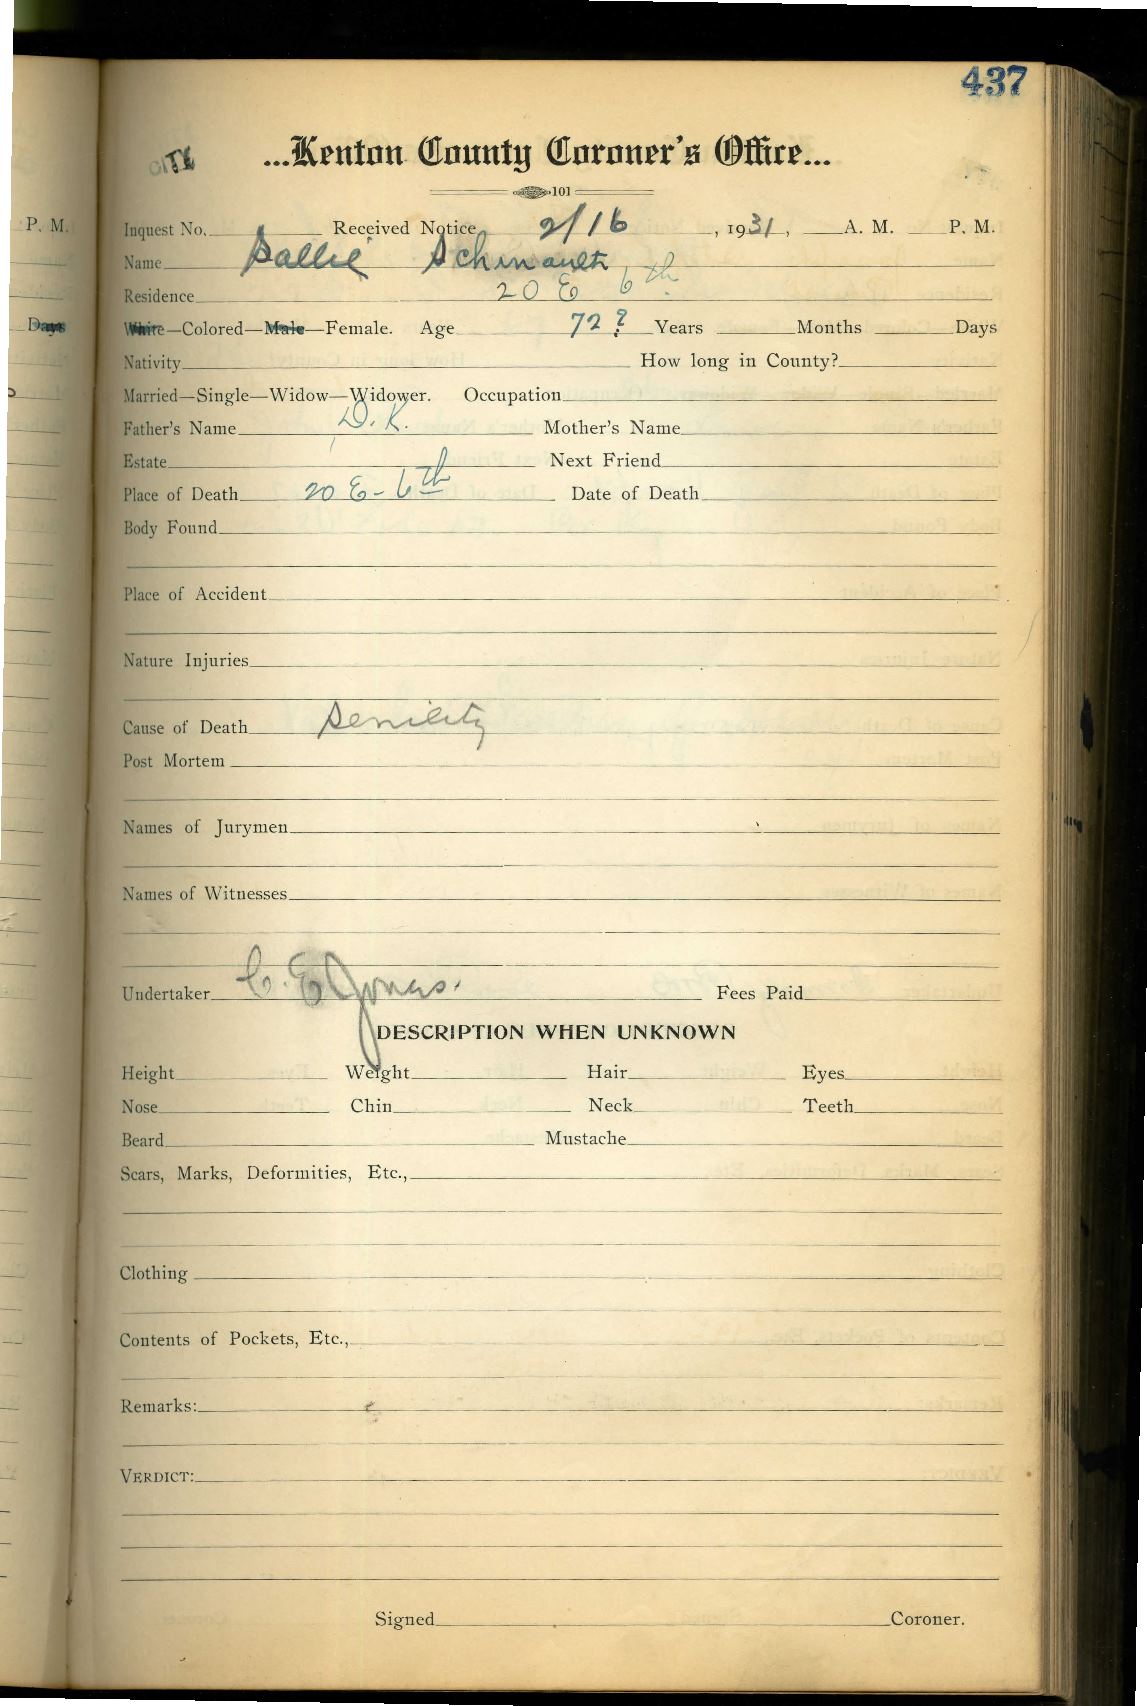 437
CITY
...Kenton County Coroner's Office...
101
P. M. Inquest No. Received Notice 2/16, 1931, A. M. P. M.
Name Sallie Schnault
Residence 20 E 6th
Days White—Colored—Male—Female. Age 72? Years Months Days
Nativity How long in County?
Married—Single—Widow—Widower. Occupation
Father's Name D.K. Mother's Name
Estate Next Friend
Place of Death 20 E-6th Date of Death
Body Found
Place of Accident
Nature Injuries
Cause of Death Senility
Post Mortem
Names of Jurymen
Names of Witnesses
Undertaker C. E Jones. Fees Paid
DESCRIPTION WHEN UNKNOWN
Height Weight Hair Eyes
Nose Chin Neck Teeth
Beard Mustache
Scars, Marks, Deformities, Etc.,
Clothing
Contents of Pockets, Etc.,
Remarks:
VERDICT:
Signed Coroner.